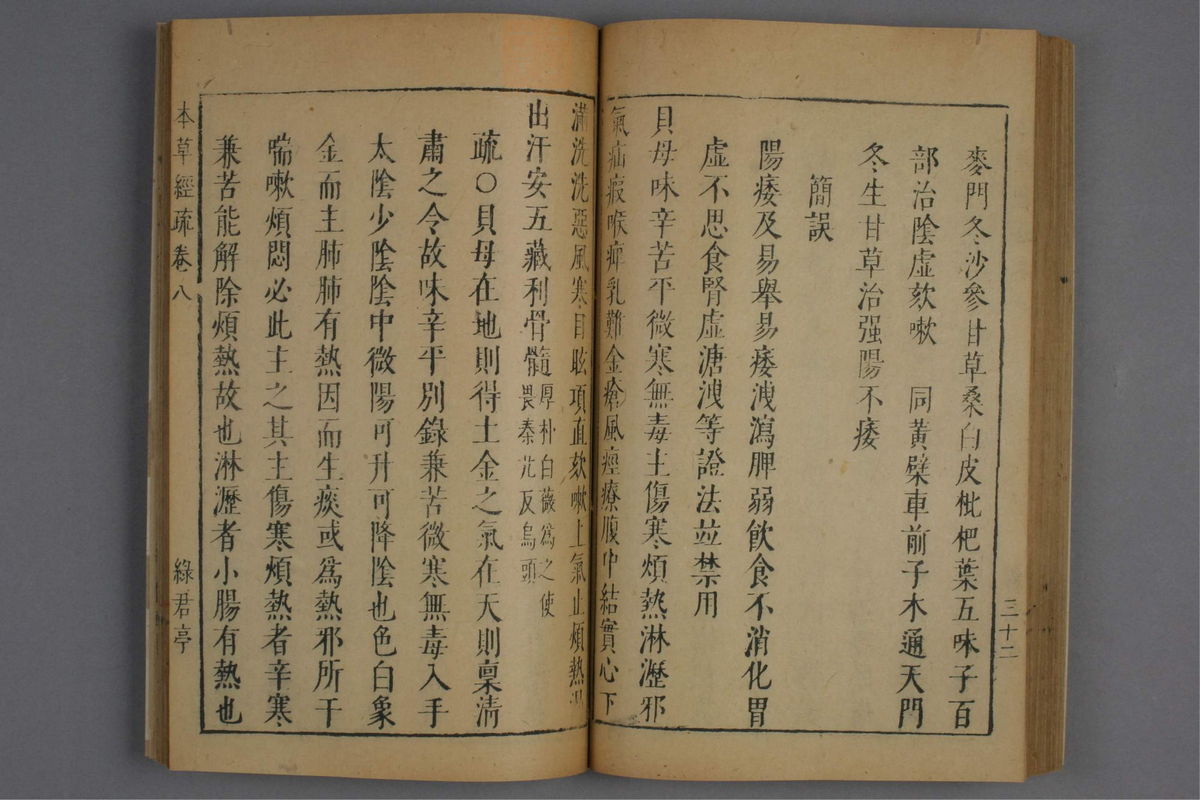 麥門冬沙參甘草桑白皮枇杷葉五味子百
部治陰虛欬嗽　同黃檗車前子木通天門
冬生甘草治强陽不痿
簡誤
陽痿及易舉易痿洩瀉脾弱飲食不消化胃
虛不思食腎虛溏洩等證法並禁用
貝母味辛苦平微寒無毒主傷寒煩熱淋瀝邪
氣疝瘕喉痺乳難金瘡風痙療腹中結實心下
三十二
滿洗洗惡風寒目眩項直欬嗽上氣止煩熱渴
出汗安五藏利骨髓厚朴白薇爲之使
畏秦艽反烏頭
疏○貝母在地則得土金之氣在天則稟清
肅之令故味辛平別錄兼苦微寒無毒入手
太陰少陰陰中微陽可升可降陰也色白象
金而主肺肺有熱因而生痰或爲熱邪所干
喘嗽煩悶必此主之其主傷寒煩熱者辛寒
兼苦能解除煩熱故也淋瀝者小腸有熱也
本草經疏卷八　綠君亭